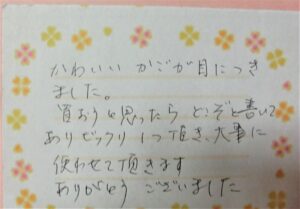 かわいい かごが目につき
ました。
買おうと思ったら どうぞと書いて
ありビックリ 1つ頂き、大事に
使わせて頂きます
ありがとう ございました